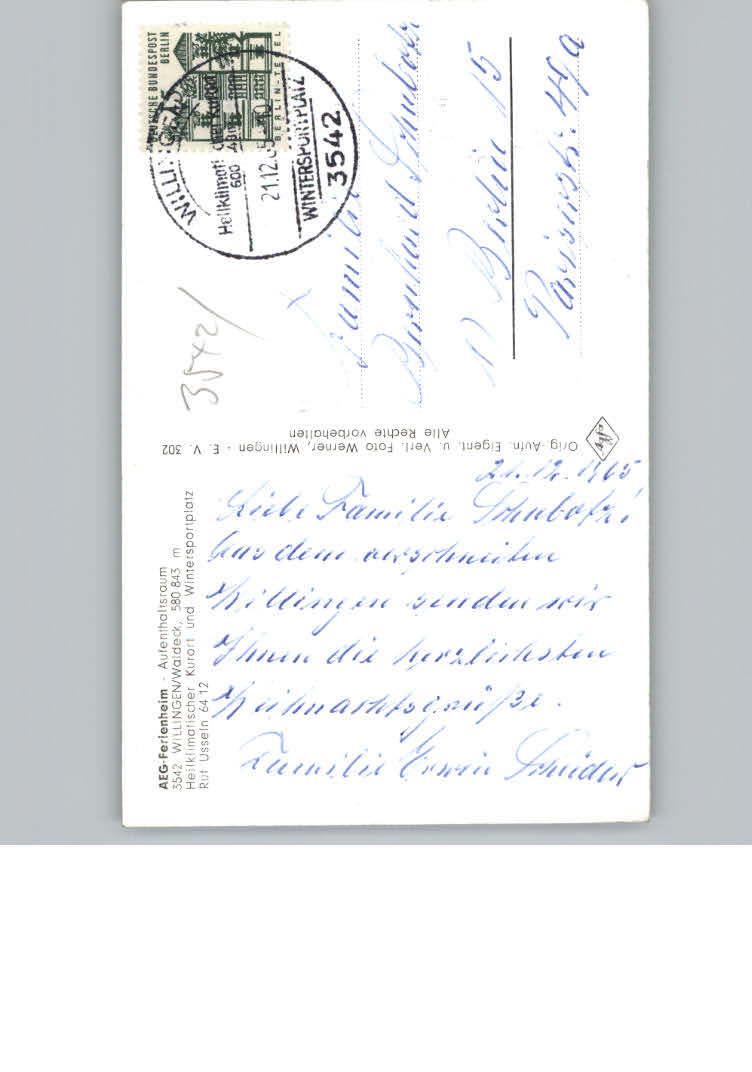 AEG-Ferienheim - Aufenthaltsraum
3542 WILLINGEN/Waldeck, 580-843 m
Heilklimatischer Kurort und Wintersportplatz
Ruf Usseln 64 12
21.12.1965
Liebe Familie
Aus dem verschneiten
Willingen senden wir
Ihnen die herzlichsten
Weihnachtsgrüße.
Familie Erwin
Orig.-Aufn. Eigent. u. Verl. Foto Werner, Willingen - E. V. 302
Alle Rechte vorbehalten
3542
DEUTSCHE BUNDESPOST
BERLIN
BERLIN-TEGEL
10
Heilklimatischer Kurort
21.12.65
WINTERSPORTPLATZ
3542
Familie
Bernhard
1 Berlin 15
Pariserstr. 49a